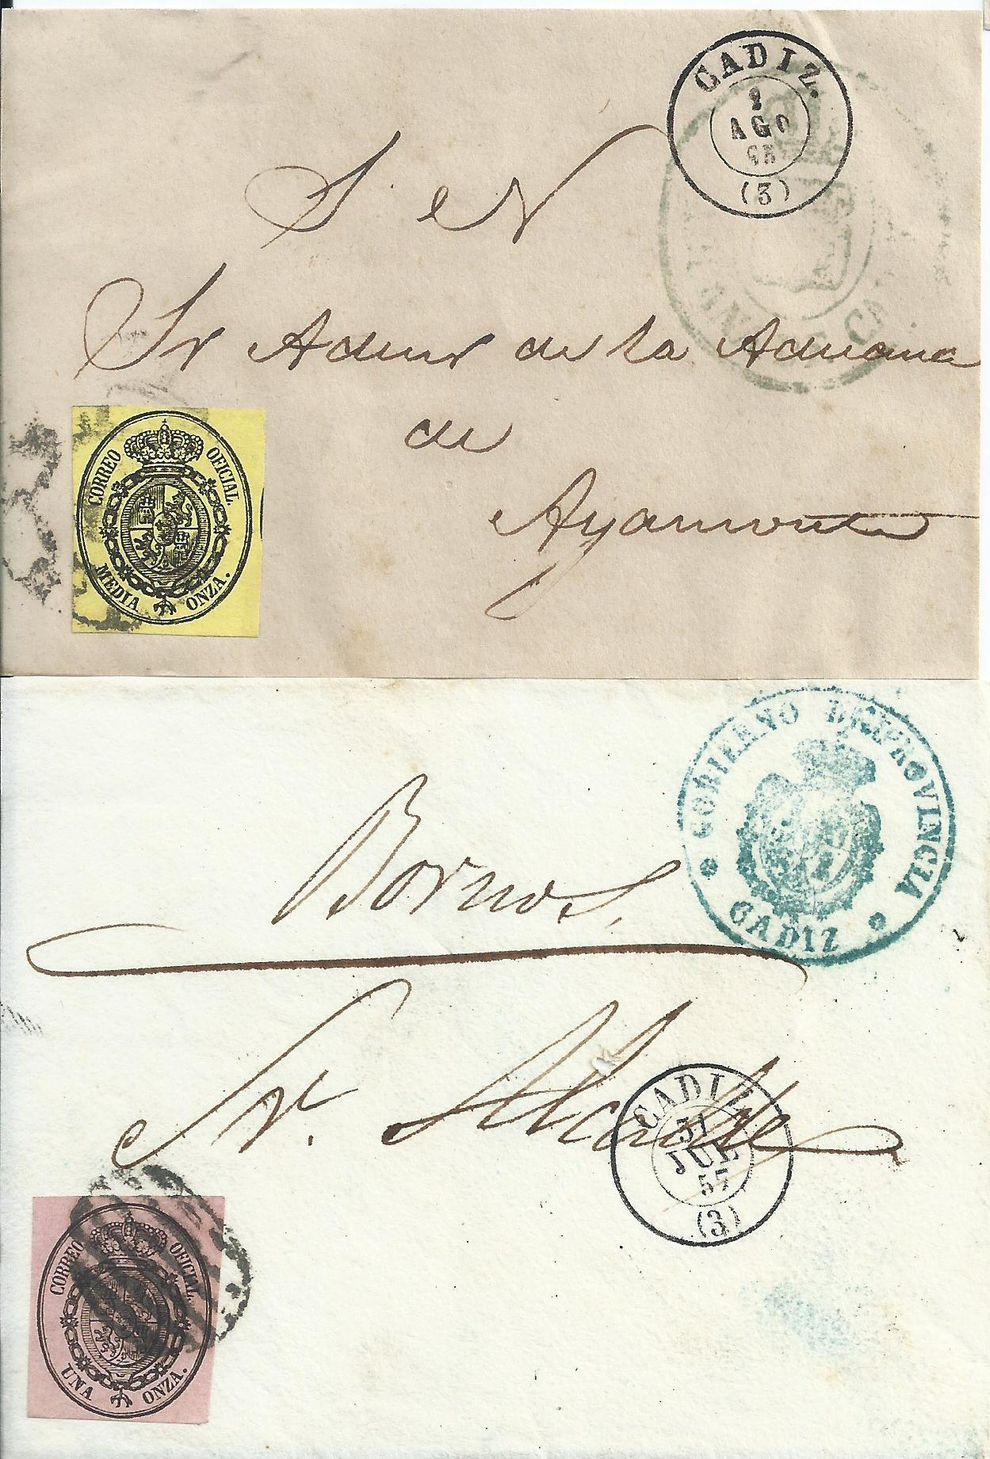 CADIZ.
2
AGO
(3)
S N
Sr Admr de la Aduana
de
Ayamonte
CORREO OFICIAL
MEDIA ONZA.
GOBIERNO DE PROVINCIA
CADIZ
Bornos.
Sr. Alcalde
CADIZ
31
JUL
57
(3)
CORREO OFICIAL
UNA ONZA.